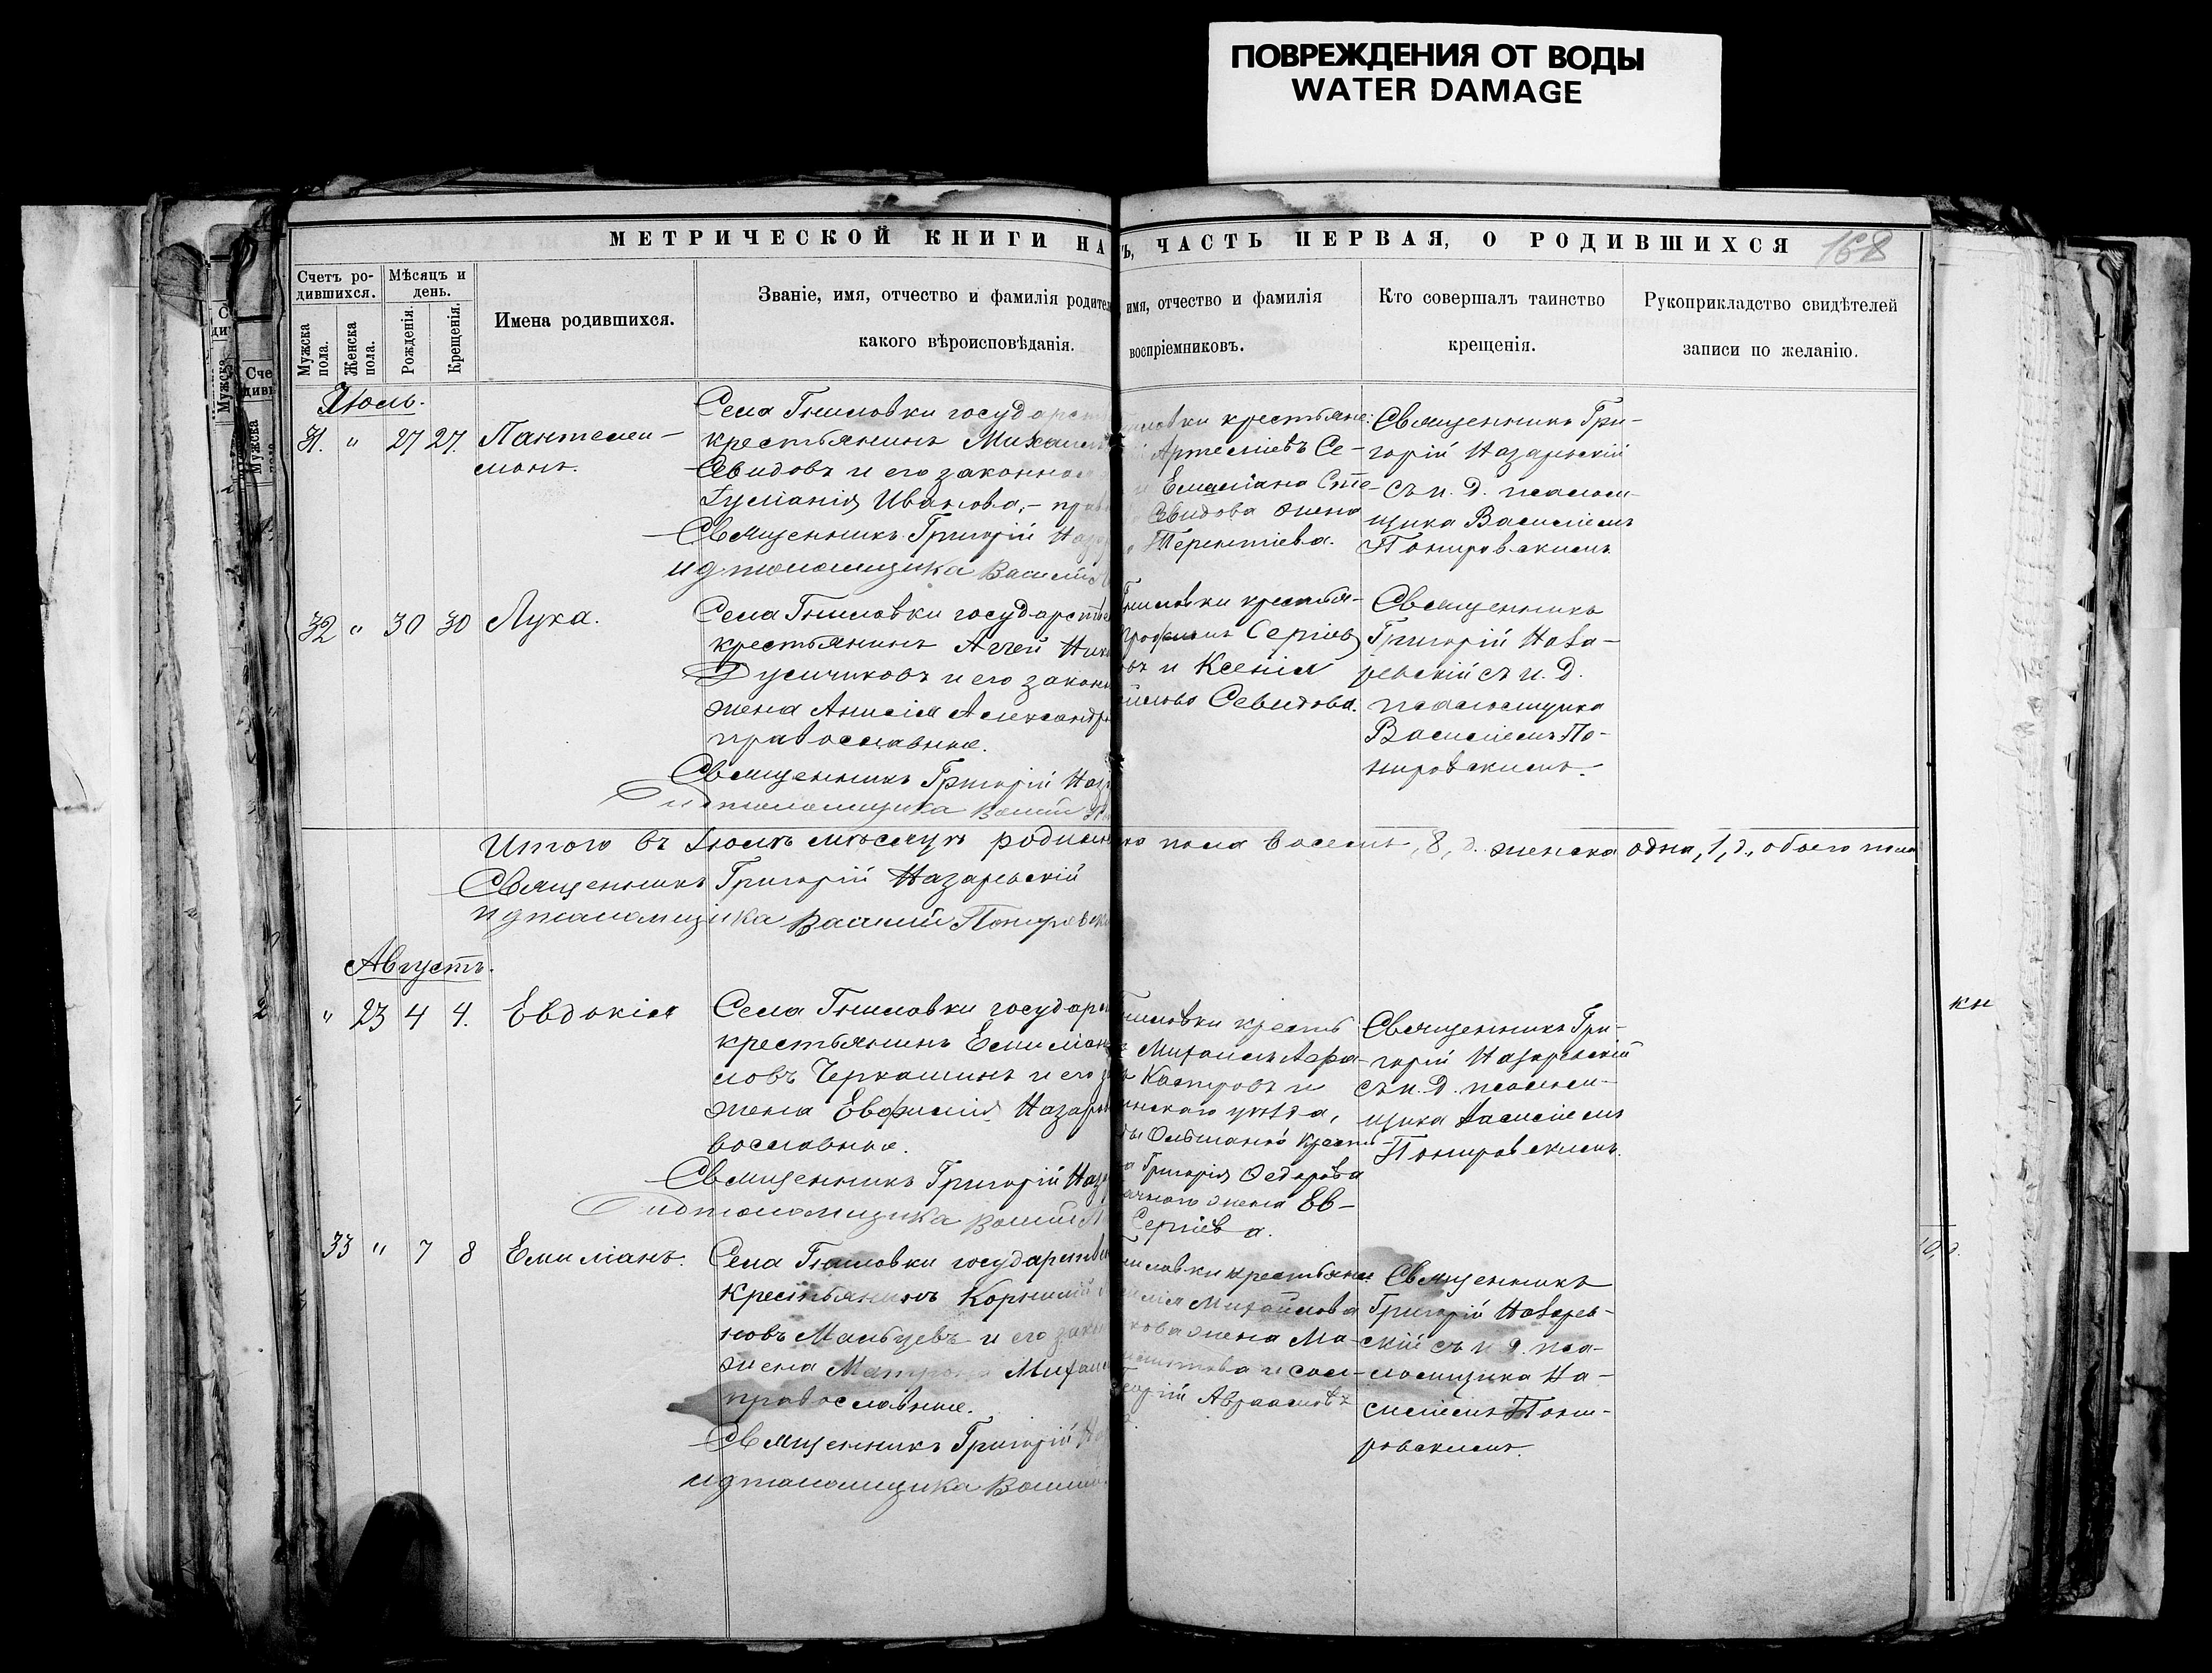 ПОВРЕЖДЕНИЯ ОТ ВОДЫ
WATER DAMAGE
МЕТРИЧЕСКОЙ КНИГИ НА
Ъ, ЧАСТЬ ПЕРВАЯ, О РОДИВШИХСЯ
168
Счетъ ро-
дившихся.
Мѣсяцъ и
день.
Мужска
пола.
Женска
пола.
Рожденія.
Крещенія.
Имена родившихся.
Званіе, имя, отчество и фамилія родител
какого вѣроисповѣданія.
имя, отчество и фамилія
воспріемниковъ.
Кто совершалъ таинство
крещенія.
Рукоприкладство свидѣтелей
записи по желанію.
Іюль.
31. " 27 27. Пантелеи-
монъ.
Села Гниловки государст
крестьянинъ Михаил
Севидовъ и его законная
Іуліанія Иванова, – прав
Священникъ Григорій Наз
и д псаломщика Васил
крестьяне:
Артеміевъ Се-
Емиліана Сте-
Севидова жена
Терентіева.
Священникъ Гри-
горій Назарьскій
съ и. д. псалом-
щика Василіемъ
Понировскимъ
32 " 30 30 Лука.
Села Гниловки государстве
крестьянинъ Аггей Ник
и его законн
жена Анисія Александр
православные.
Священникъ Григорій Наз
и д псаломщика
Гниловки крестья-
Сергіев
въ и Ксенія
Севидова.
Священникъ
Григорій Наза-
рьскій съ и. д.
псаломщика
Василіемъ По-
нировскимъ.
Итого въ Іюлѣ мѣсяцѣ родил
ко пола восемь, 8, д. женска одна, 1, д., обоего пола
Священникъ Григорій Назарьскій
и д псаломщика Василій Понировск
Августъ.
" 23 4 4. Евдокія
Села Гниловки государ
крестьянинъ Емиліан
новъ Черкашинъ и его з
жена Евфимія Назарь
вославные.
Священникъ Григорій Наз
и д псаломщика
ниловки кресть
Михаилъ Афа-
Костровъ и
уѣзда,
Ольшанки крест-
а Григорія Федорова
жена Ев-
Сергіева.
Священникъ Гри-
горій Назарьскій
съ и. д. псалом-
щика Василіемъ
Понировскимъ.
33 " 7 8 Емиліанъ.
Села Гниловки государстве
крестьянинъ Корнилій
новъ Мальцевъ и его зак
жена Матрона Михаил
православные.
Священникъ Григорій На
и д псаломщика Васил
ниловки крестьяне
Михайлова
кова жена Ма-
Авраамовъ
Священникъ
Григорій Назарь-
скій съ и д. пса-
ломщика Ва-
силіемъ Пони-
ровскимъ.